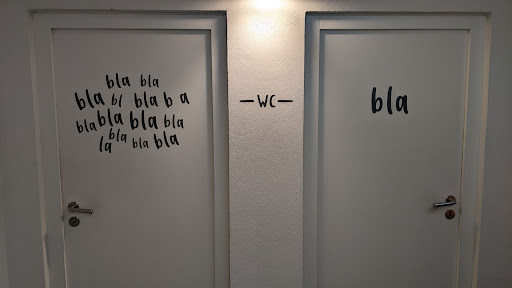 bla bla
bla bl bla b a
bla bla bla bla
bla
la bla bla
— WC —
bla